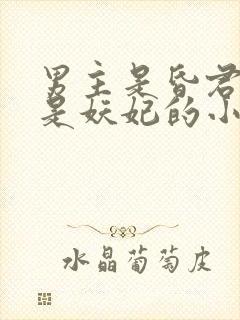 男主是昏君
是妖妃的小
水晶葡萄皮